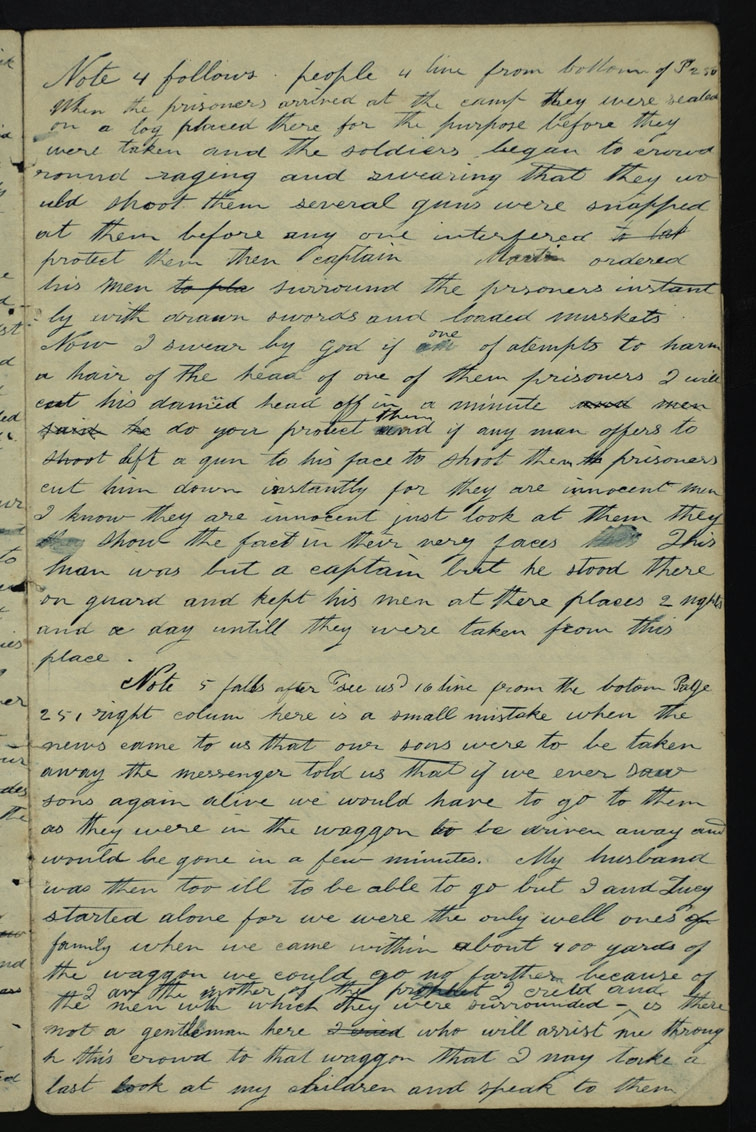 Note 4 follows people 4 line from bottom of P 250
When the prisoners arrived at the camp they were sealed
on a log placed there for the purpose before they
were taken and the soldiers began to crowd
round raging and swearing that they wo
uld shoot them several guns were snapped
at them before any one interfered to
protect them then captain Martin ordered
his men to pla surround the prsoners instant
ly with drawn swords and loaded muskets
Now I swear by God if one of atempts to harm
a hair of the head of one of them prisoners I will
cut his damned head off in a minute and men
said he do your protect them and if any man offers to
shoot lift a gun to his face to shoot them prisoners
cut him down instantly for they are innocent men
I know they are innocent just look at them they
show the fact in their very faces This
man was but a captain but he stood there
on guard and kept his men at there places 2 nights
and a day untill they were taken from this
place .
Note 5 falls after "see us" 16 line from the botom Palge
251 right colum here is a small mistake when the
news came to us that our sons were to be taken
away the messenger told us that if we ever saw
sons again alive we would have to go to them
as they were in the waggon to be driven away and
would be gone in a few minutes. My husband
was then too ill to be able to go but I and Lucy
started alone for we were the only well ones of
family when we came within about 400 yards of
the waggon we could go no farther because of
I am the mother of the prophet I cried and
the men with which they were surrounded - is there
not a gentleman here I cried who will assist me throug
h this crowd to that waggon that I may take a
last look at my children and speak to them